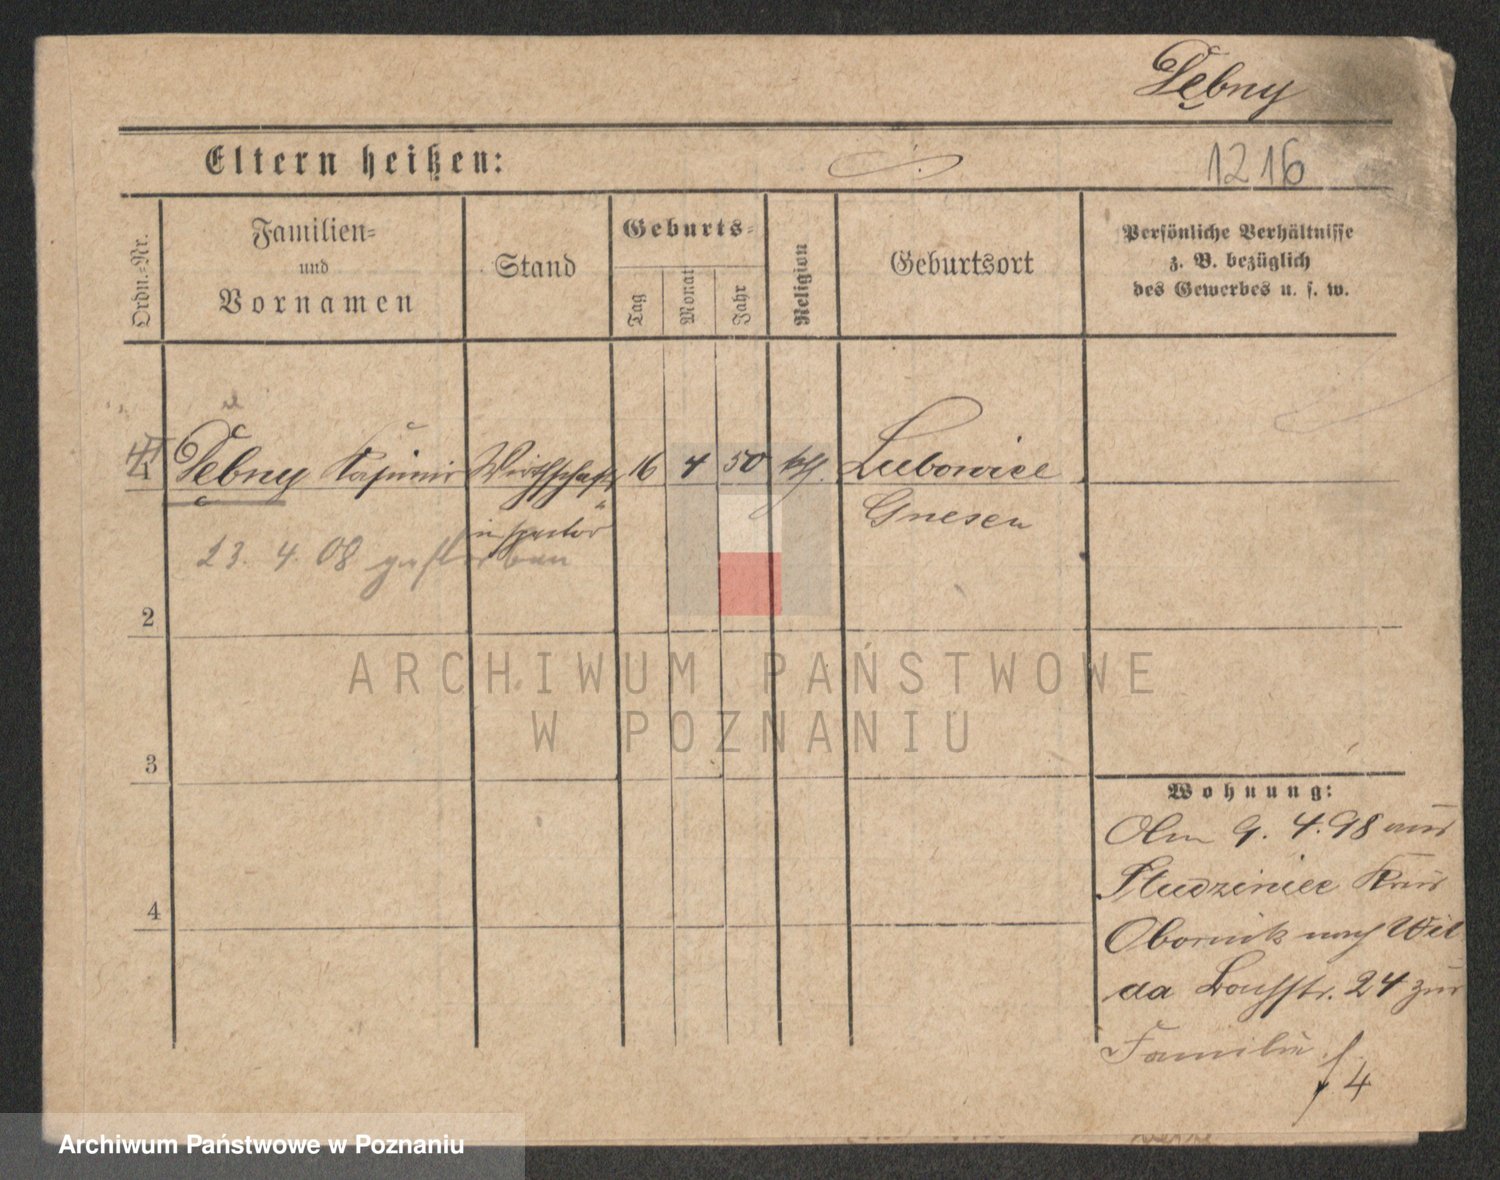 Dębny
Eltern heißen:
1216
Ordn.=Nr.
Familien=
und
Vornamen
Stand
Geburts=
Tag
Monat
Jahr
Religion
Geburtsort
Persönliche Verhältnisse
z. B. bezüglich
des Gewerbes u. s. w.
Dębny Kasimir Wirthschafts 16 4 50 kth. Lubowice
inspector
Gnesen
23. 4. 08 gestorben
2
3
4
ARCHIWUM PAŃSTWOWE
W POZNANIU
Wohnung:
9. 4. 98 aus
Studziniec Kreis
Obornik nach Wil
da 24 zur
Familie
4
Archiwum Państwowe w Poznaniu